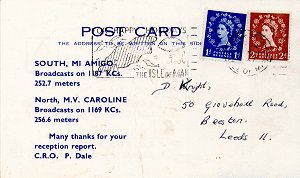 POST CARD
THE ADDRESS TO BE WRITTEN ON THIS SIDE
SOUTH, MI AMIGO
Broadcasts on 1187 KCs.
252.7 meters
North, M.V. CAROLINE
Broadcasts on 1169 KCs.
256.6 meters
Many thanks for your
reception report.
C.R.O. P. Dale
THE ISLE OF MAN
D. Knight,
50 Grovehall Road,
Beeston.
Leeds 11.